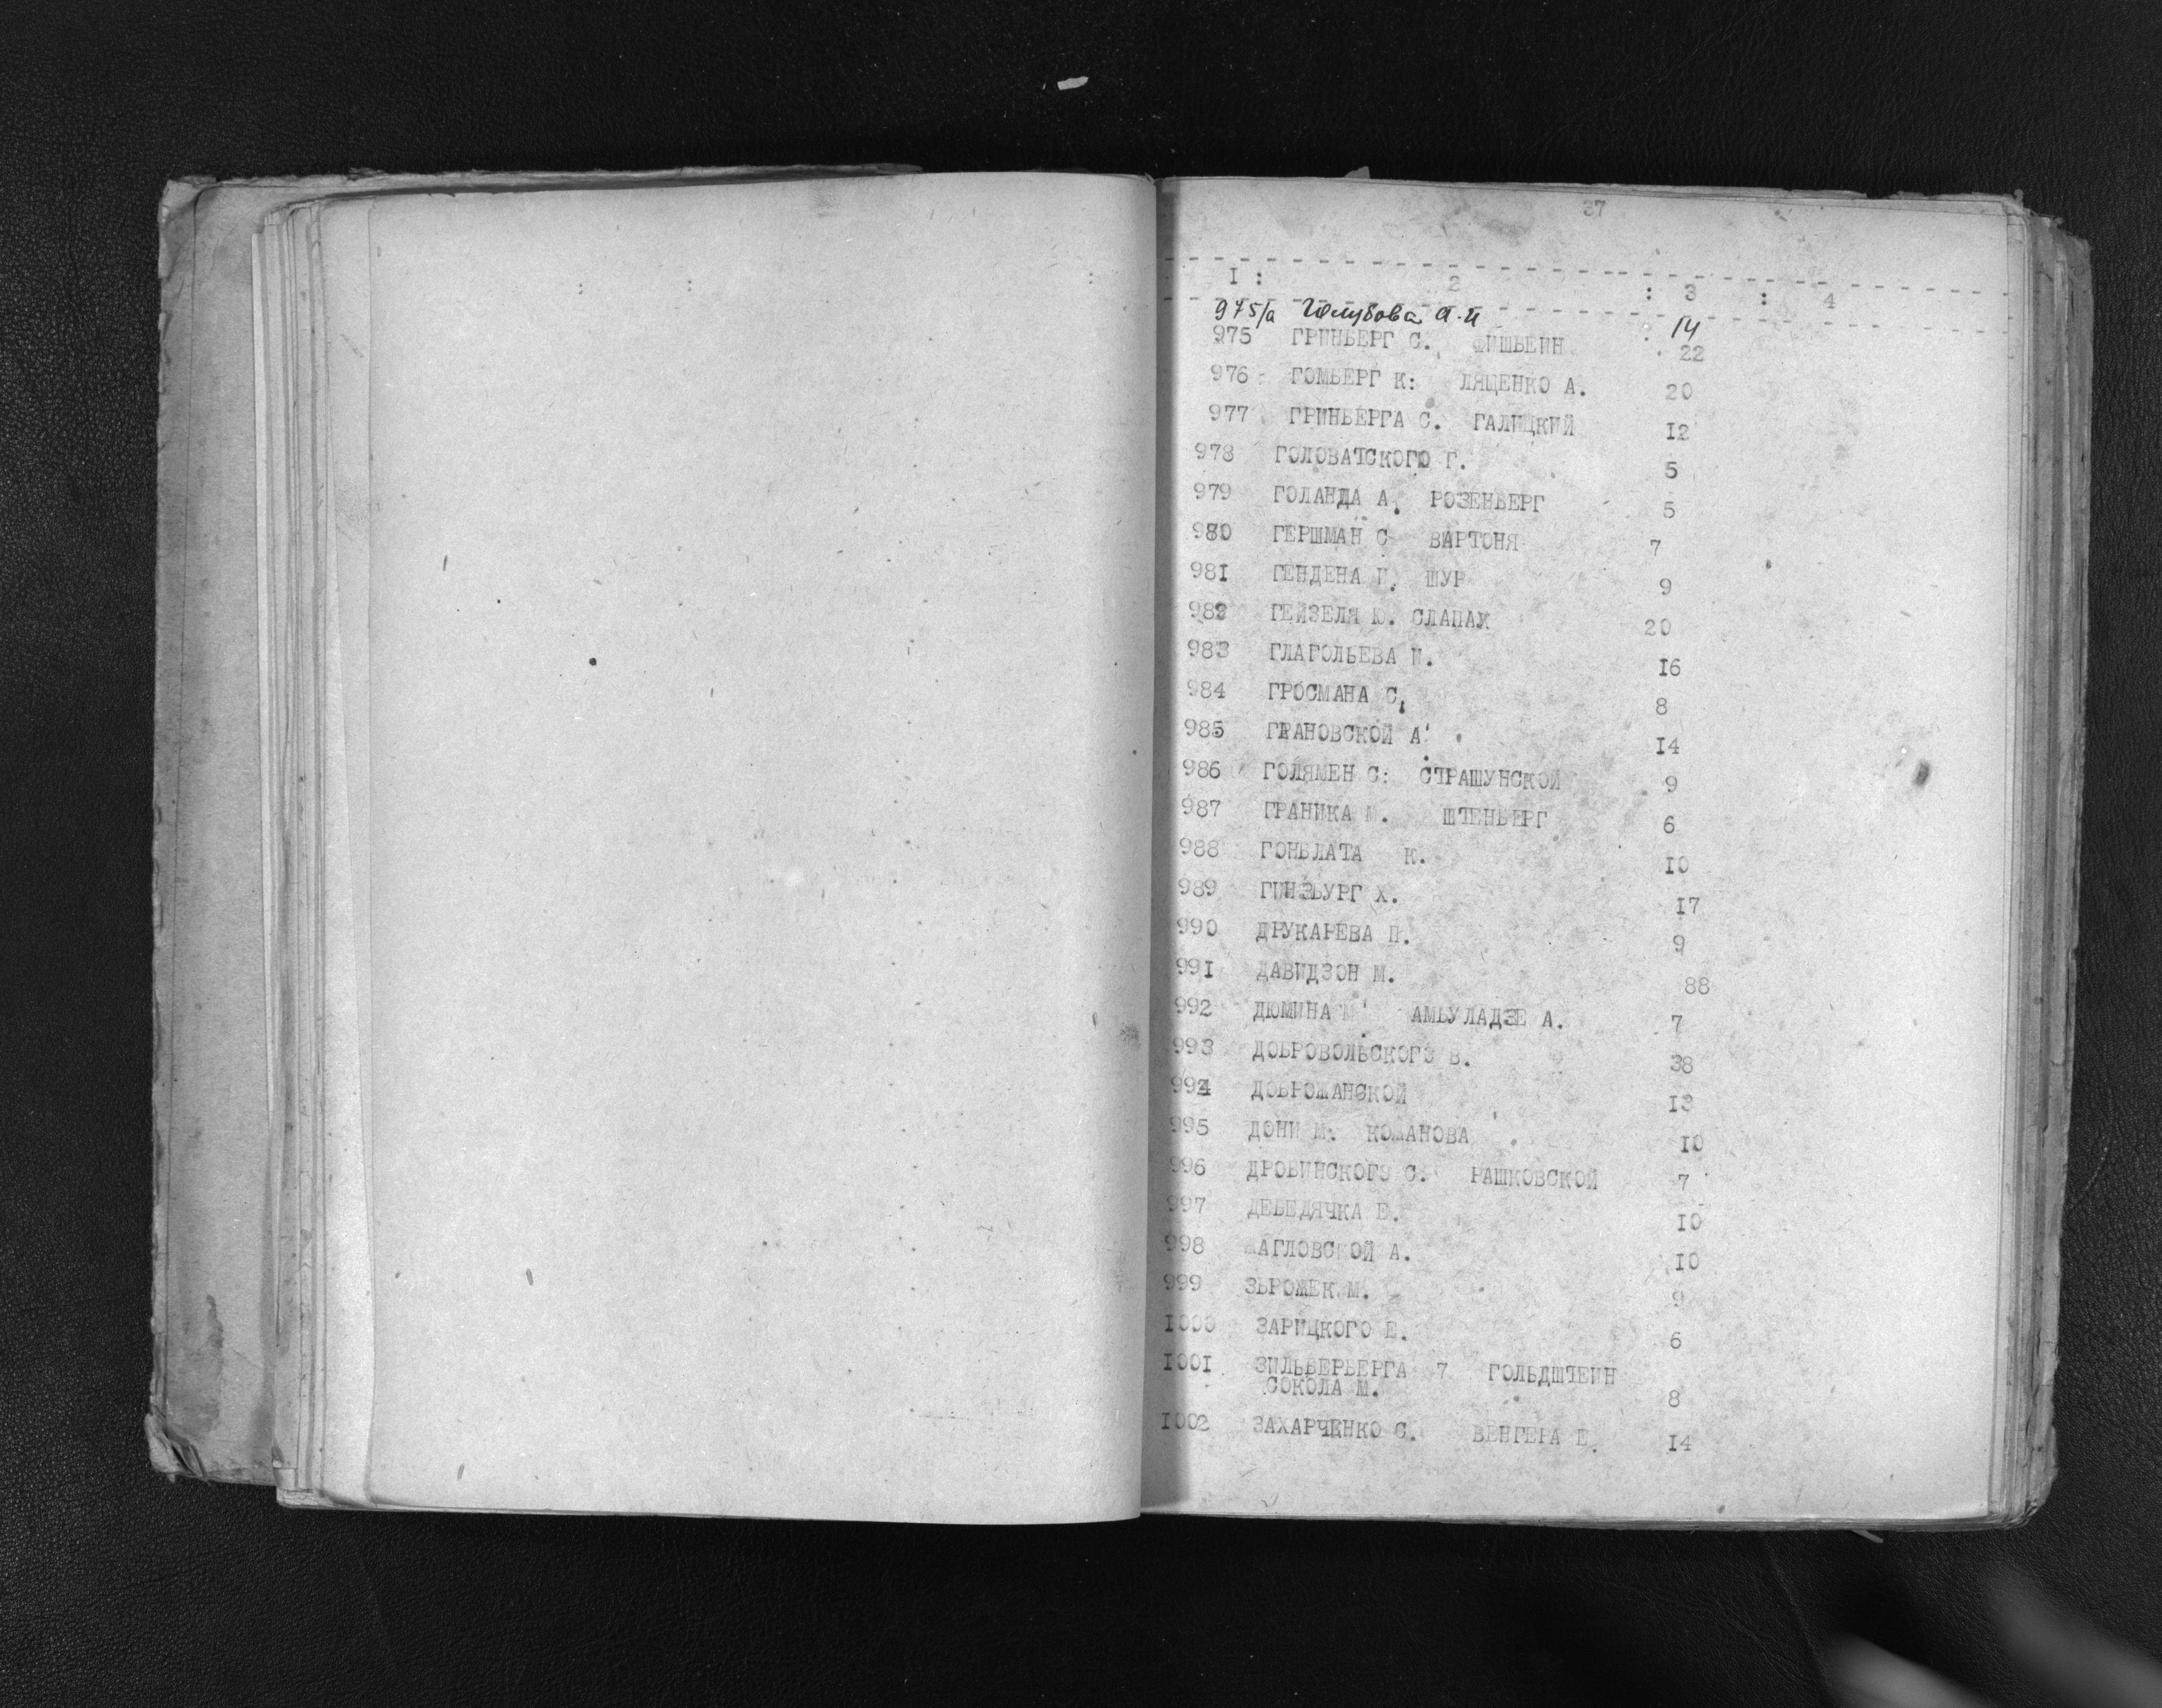 37
I : 2 : 3 : 4
975/а Голубова А.И 14
975 ГРИНБЕРГ С. ФИШБЕИН 22
976 ГОМБЕРГ К: ЛЯЩЕНКО А. 20
977 ГРИНБЕРГА С. ГАЛИЦКИЙ I2
978 ГОЛОВАТСКОГО Г. 5
979 ГОЛАНДА А. РОЗЕНБЕРГ 5
980 ГЕРШМАН С ВАРТОНЯ 7
981 ГЕНДЕНА П. ШУР 9
982 ГЕЙЗЕЛЯ Ю. СЛАПАК 20
983 ГЛАГОЛЬЕВА И. I6
984 ГРОСМАНА С, 8
985 ГРАНОВСКОЙ А' I4
986 ГОЛЯМЕН С: СТРАШУНСКОЙ 9
987 ГРАНИКА М. ШТЕНБЕРГ 6
988 ГОНБЛАТА К. I0
989 ГИНЗБУРГ Х. I7
990 ДРУКАРЕВА П. 9
99I ДАВИДЗОН М. 88
992 ДЮМИНА АМБУЛАДЗЕ А. 7
993 ДОБРОВОЛЬСКОГО В. 38
994 ДОБРОЖАНСКОЙ I3
995 ДОНИ М: КОЖАНОВА I0
996 ДРОБИНСКОГО С. РАШКОВСКОЙ 7
997 ДЕБЕДЯЧКА Е. I0
998 ЖАГЛОВСКОЙ А. I0
999 ЗБРОЖЕК М. 9
I000 ЗАРИЦКОГО Е. 6
I00I ЗИЛЬБЕРБЕРГА 7 ГОЛЬДШТЕИН
СОКОЛА М. 8
I002 ЗАХАРЧЕНКО С. ВЕНГЕРА Е. I4